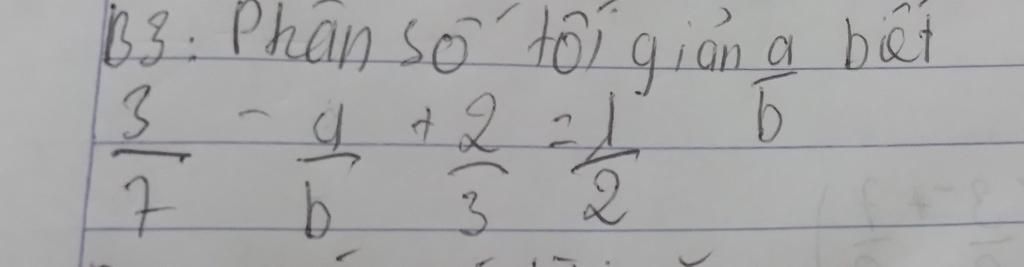 B3: Phân số tối giản a/b biết
3/7 - a/b + 2/3 = 1/2